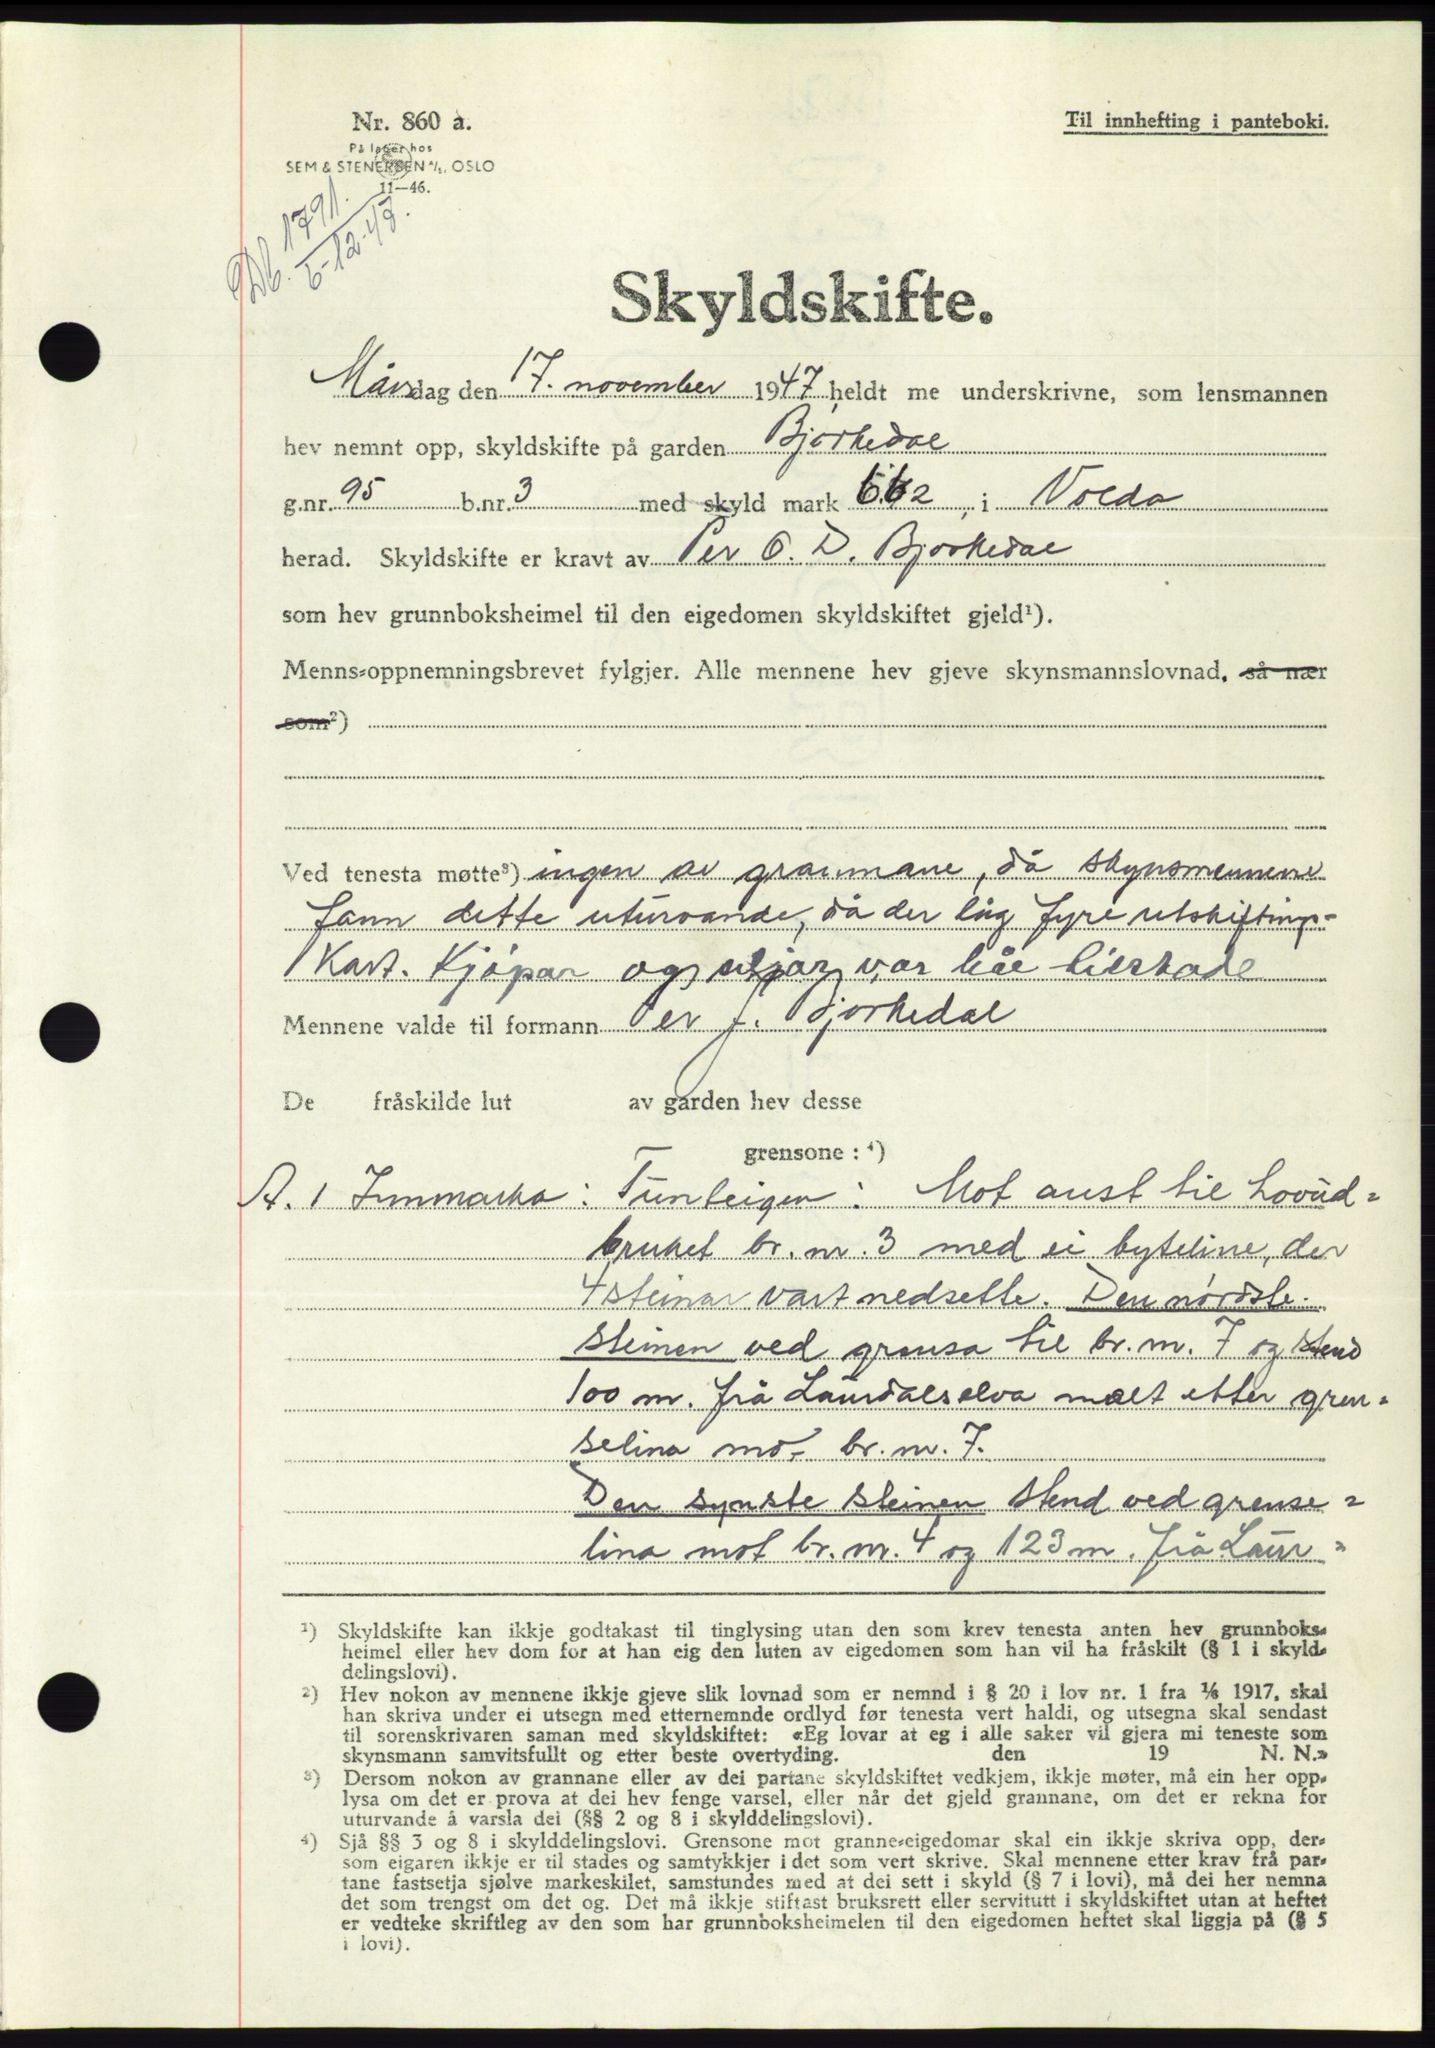 Nr. 860 a.
Til innhefting i panteboki.
På lager hos
SEM & STENERSEN A/S, OSLO
11—46.
Db. 1791.
6-12-47.
Skyldskifte.
Måndag den 17. november 1947 heldt me underskrivne, som lensmannen
hev nemnt opp, skyldskifte på garden Bjørkedal
g.nr. 95 b.nr. 3 med skyld mark 6.62, i Volda
herad. Skyldskifte er kravt av Per O. D. Bjørkedal
som hev grunnboksheimel til den eigedomen skyldskiftet gjeld¹).
Menns-oppnemningsbrevet fylgjer. Alle mennene hev gjeve skynsmannslovnad, så nær
som²)
Ved tenesta møtte³) ingen av grannane, då skynsmennene
fann dette uturvande, då der låg fyre utskiftings-
kart. Kjøpar og seljar var båe tilstade
Mennene valde til formann Per J. Bjørkedal
De fråskilde lut av garden hev desse
grensone : ⁴)
A. 1 Innmarka : Tunteigen : Mot aust til hovud-
bruket br. nr. 3 med ei byteline, der
4 steinar vart nedsette. Den nørdste
steinen ved grensa til br. nr. 7 og stend
100 m. frå Laurdalselva mælt etter gren-
selina mot br. nr. 7.
Den synste steinen stend ved grense-
lina mot br. nr. 4 og 123 m. frå Laur-
¹) Skyldskifte kan ikkje godtakast til tinglysing utan den som krev tenesta anten hev grunnboks-
heimel eller hev dom for at han eig den luten av eigedomen som han vil ha fråskilt (§ 1 i skyld-
delingslovi).
²) Hev nokon av mennene ikkje gjeve slik lovnad som er nemnd i § 20 i lov nr. 1 fra 1/6 1917, skal
han skriva under ei utsegn med etternemnde ordlyd før tenesta vert haldi, og utsegna skal sendast
til sorenskrivaren saman med skyldskiftet: «Eg lovar at eg i alle saker vil gjera mi teneste som
skynsmann samvitsfullt og etter beste overtyding. den 19 N. N.»
³) Dersom nokon av grannane eller av dei partane skyldskiftet vedkjem, ikkje møter, må ein her opp-
lysa om det er prova at dei hev fenge varsel, eller når det gjeld grannane, om det er rekna for
uturvande å varsla dei (§§ 2 og 8 i skylddelingslovi).
⁴) Sjå §§ 3 og 8 i skylddelingslovi. Grensone mot granne-eigedomar skal ein ikkje skriva opp, der-
som eigaren ikkje er til stades og samtykkjer i det som vert skrive. Skal mennene etter krav frå par-
tane fastsetja sjølve markeskilet, samstundes med at dei sett i skyld (§ 7 i lovi), må dei her nemna
det som trengst om det og. Det må ikkje stiftast bruksrett eller servitutt i skyldskiftet utan at heftet
er vedteke skriftleg av den som har grunnboksheimelen til den eigedomen heftet skal liggja på (§ 5
i lovi).